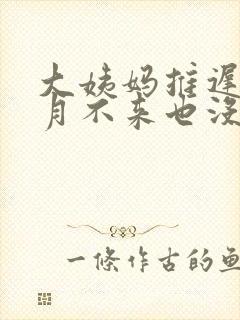 大姨妈推迟
月不来也没
一條作古的鱼